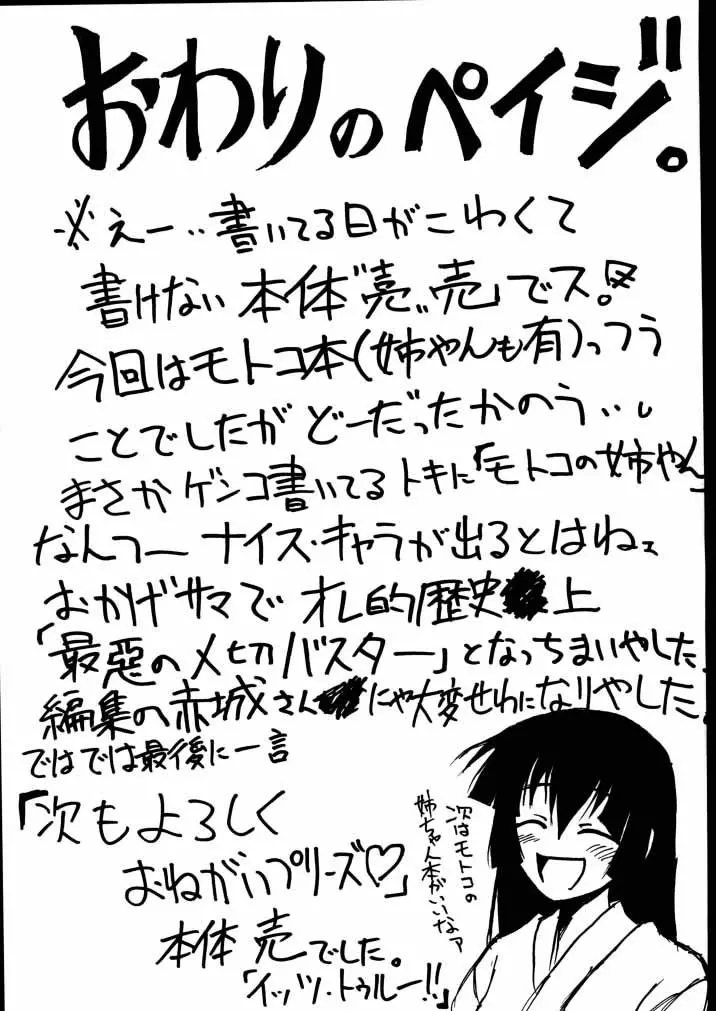 おわりのペイジ。
※えー‥書いてる日がこわくて
書けない本体〝売〟売」でス。
今回はモトコ本(姉やんも有)っつう
ことでしたが どーだったかのう‥
まさかゲンコ書いてるトキに「モトコの姉やん」
なんつーナイス・キャラが出るとはねェ
おかげサマでオレ的歴史上
「最悪のメ切バスター」となっちまいやした
編集の赤城さんにゃ大変せわになりやした
ではでは最後に一言
「次もよろしく
おねがいプリーズ♡」
本体 売でした。
「イッツ・トゥルー!!」
次はモトコの
姉ちゃん本がいいなァ